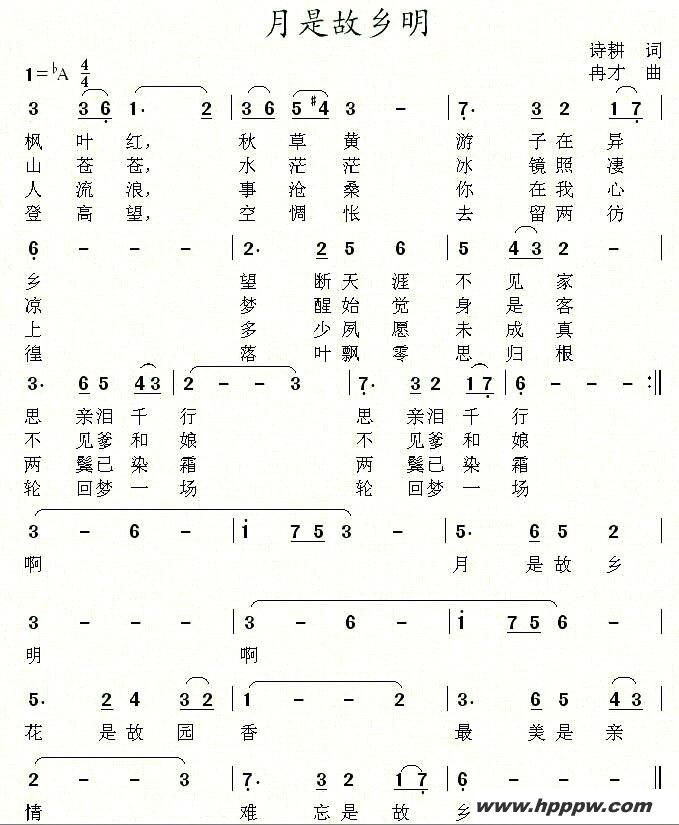 月是故乡明
诗耕 词
1=♭A 4/4
冉才 曲
3 3 6 1· 2 | 3 6 5 #4 3 - | 7· 3 2 1 7 |
枫 叶 红, 秋 草 黄 游 子 在 异
山 苍 苍, 水 茫 茫 冰 镜 照 凄
人 流 浪, 事 沧 桑 你 在 我 心
登 高 望, 空 惆 怅 去 留 两 彷
6 - - - | 2· 2 5 6 | 5 4 3 2 - |
乡 望 断 天 涯 不 见 家
凉 梦 醒 始 觉 身 是 客
上 多 少 夙 愿 未 成 真
徨 落 叶 飘 零 思 归 根
3· 6 5 4 3 | 2 - - 3 | 7· 3 2 1 7 | 6 - - - :||
思 亲 泪 千 行 思 亲 泪 千 行
不 见 爹 和 娘 不 见 爹 和 娘
两 鬓 已 染 霜 两 鬓 已 染 霜
轮 回 梦 一 场 轮 回 梦 一 场
3 - 6 - | i 7 5 3 - | 5· 6 5 2 |
啊 月 是 故 乡
3 - - - | 3 - 6 - | i 7 5 6 - |
明 啊
5· 2 4 3 2 | 1 - - 2 | 3· 6 5 4 3 |
花 是 故 园 香 最 美 是 亲
2 - - 3 | 7· 3 2 1 7 | 6 - - - ||
情 难 忘 是 故 乡
www.hpppw.com